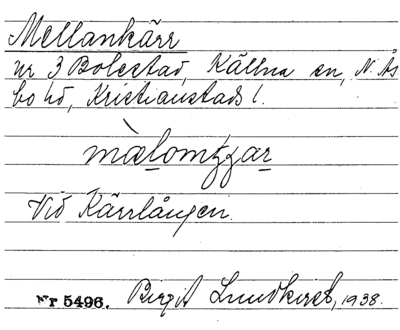 Mellankärr
nr 3 Bolestad, Källna sn, N. Ås
bo hd, Kristianstads l.
Vid Kärrlången.
Nr 5496. Birgit Lundkvist, 1938.